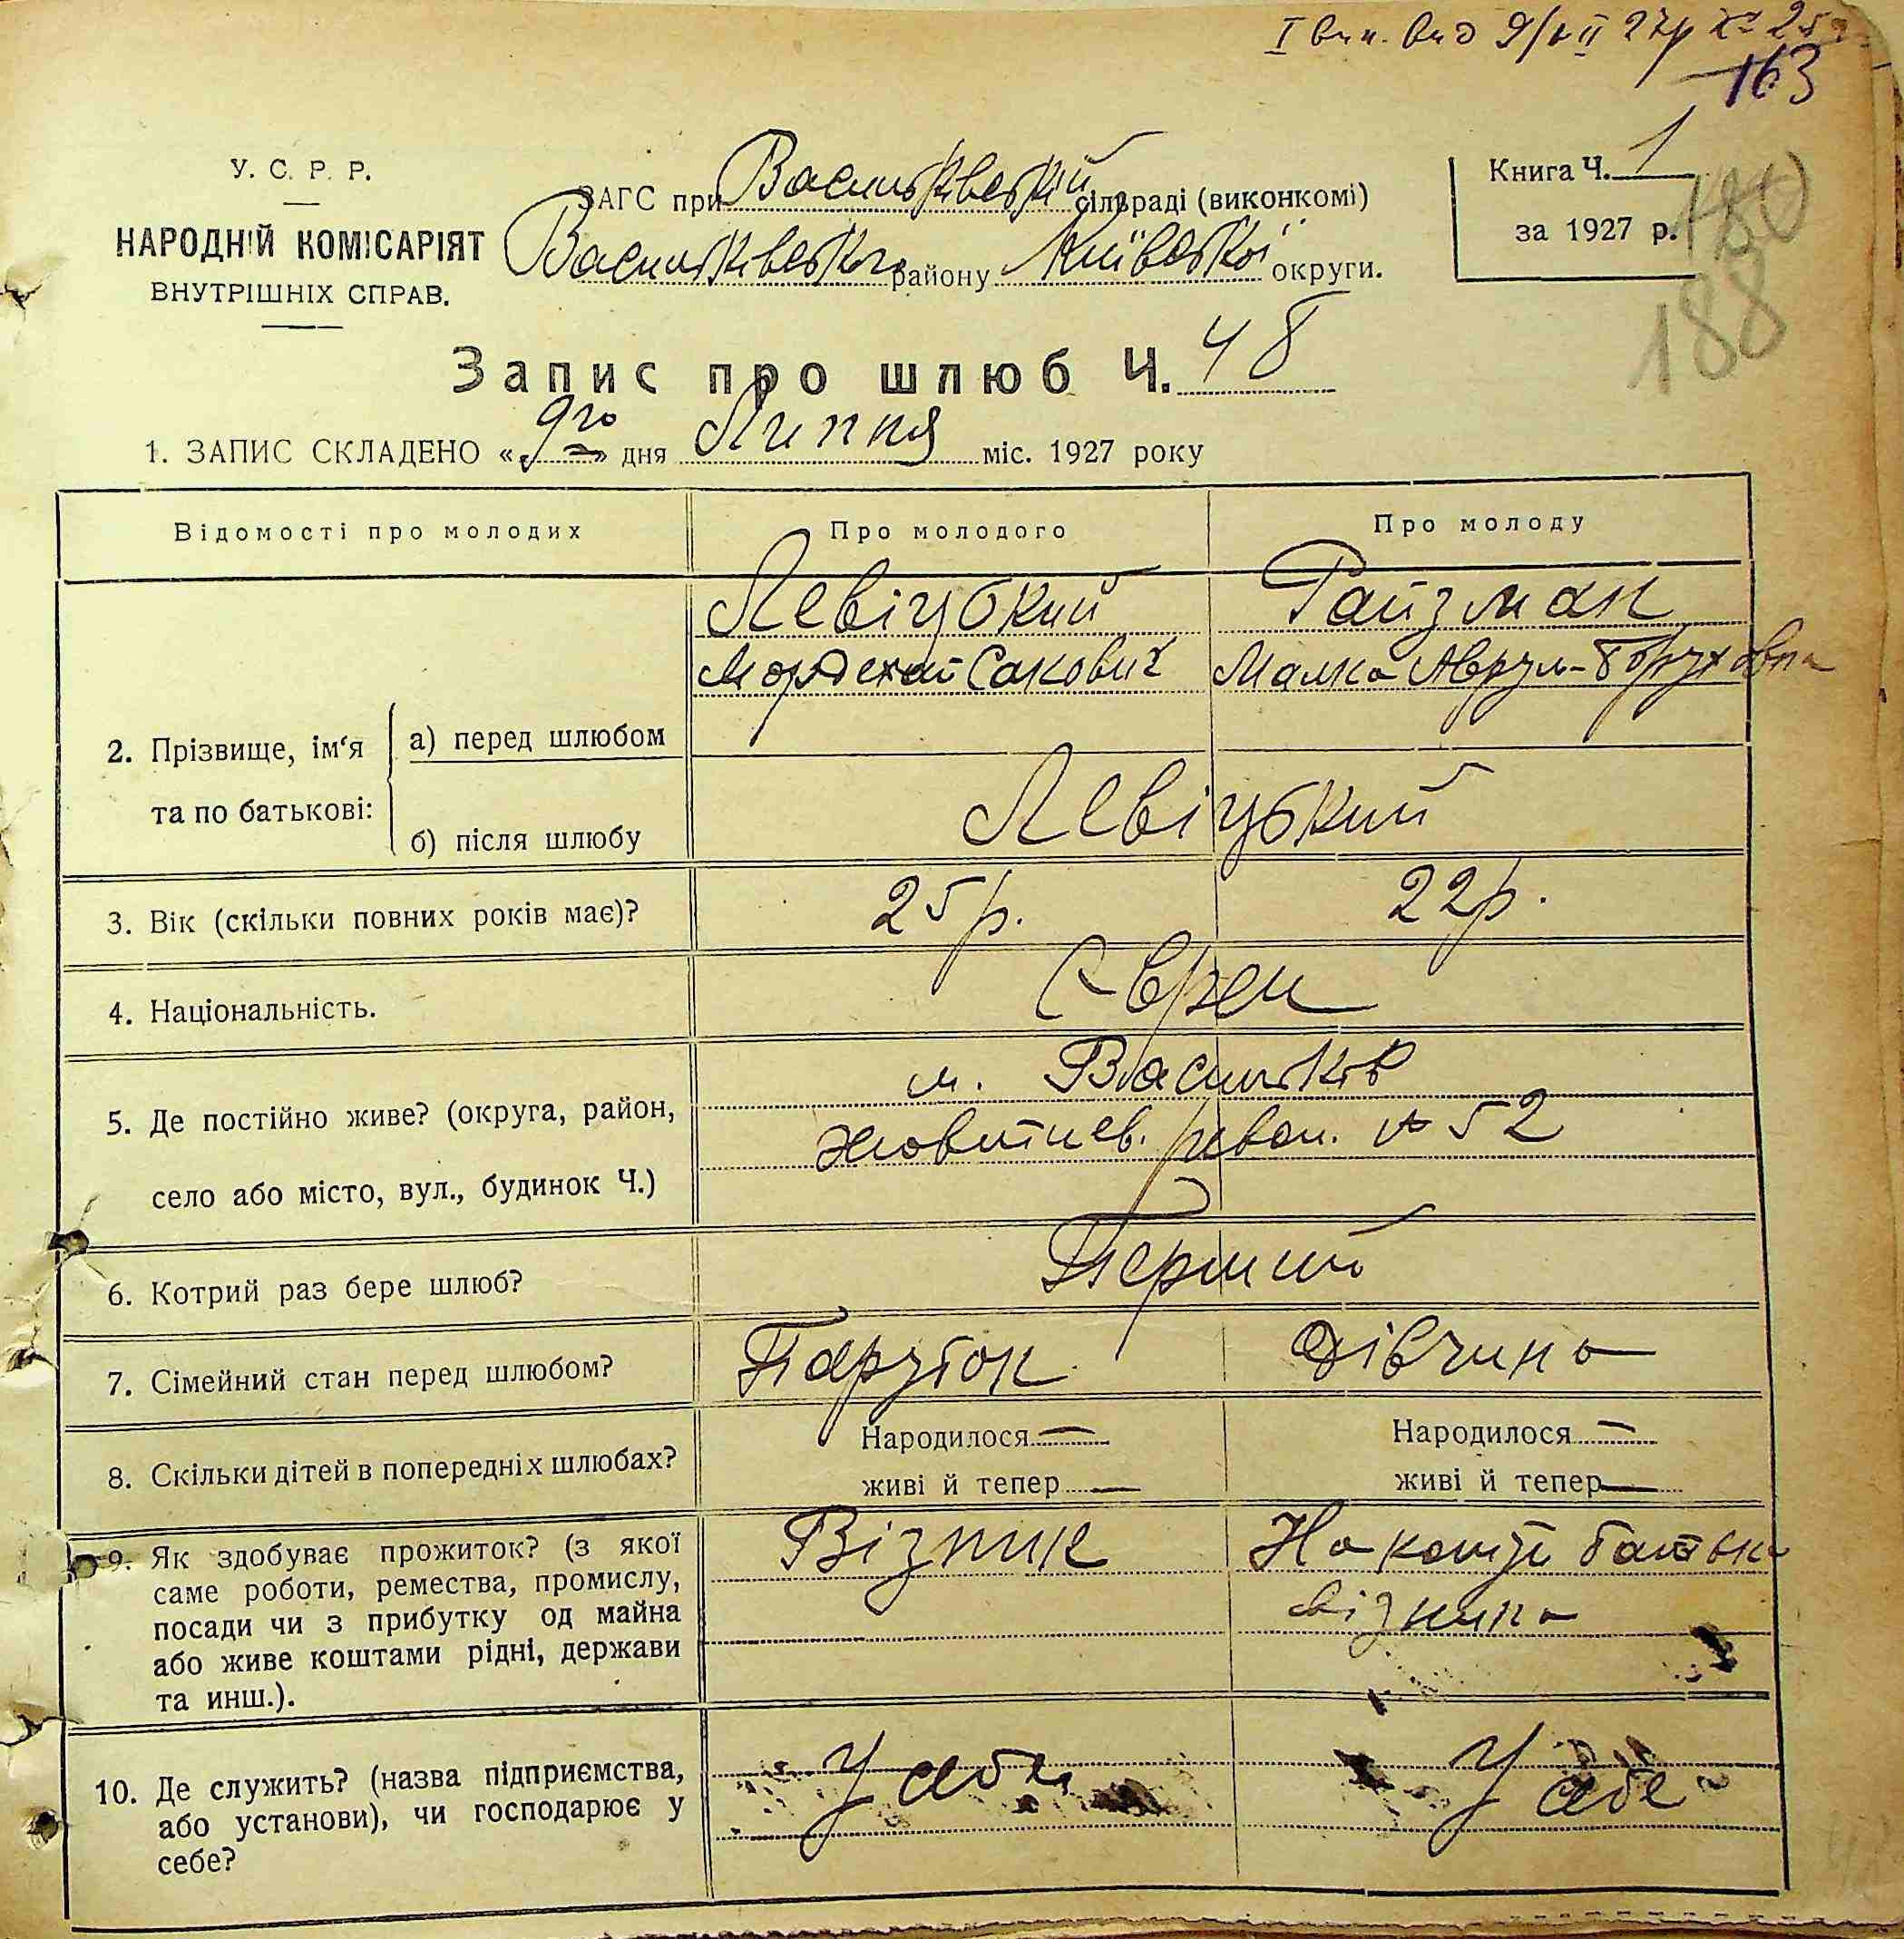 І вип. вид 9/VII 27р № 25
163
У. С. Р. Р.
НАРОДНІЙ КОМІСАРІЯТ
ВНУТРІШНІХ СПРАВ.
ЗАГС при Васильківській сільраді (виконкомі)
Васильківського району Київської округи.
Книга Ч. 1
за 1927 р.
180
188
Запис про шлюб Ч. 48
1. ЗАПИС СКЛАДЕНО «9го» дня Липня міс. 1927 року
Відомості про молодих
Про молодого
Про молоду
2. Прізвище, ім‘я та по батькові:
а) перед шлюбом
Левіцький
Мордехай Сакович
Райзман
Малка Аврум-Боруховна
б) після шлюбу
Левіцький
3. Вік (скільки повних років має)?
25 р.
22 р.
4. Національність.
Євреи
5. Де постійно живе? (округа, район,
село або місто, вул., будинок Ч.)
м. Васильків
Жовтнев. револ. № 52
6. Котрий раз бере шлюб?
Перший
7. Сімейний стан перед шлюбом?
Парубок
Дівчина
8. Скільки дітей в попередніх шлюбах?
Народилося —
живі й тепер —
Народилося —
живі й тепер —
9. Як здобуває прожиток? (з якої
саме роботи, ремества, промислу,
посади чи з прибутку од майна
або живе коштами рідні, держави
та инш.).
Візник
На кошті батька
візника
10. Де служить? (назва підприємства,
або установи), чи господарює у
себе?
У себе
У себе